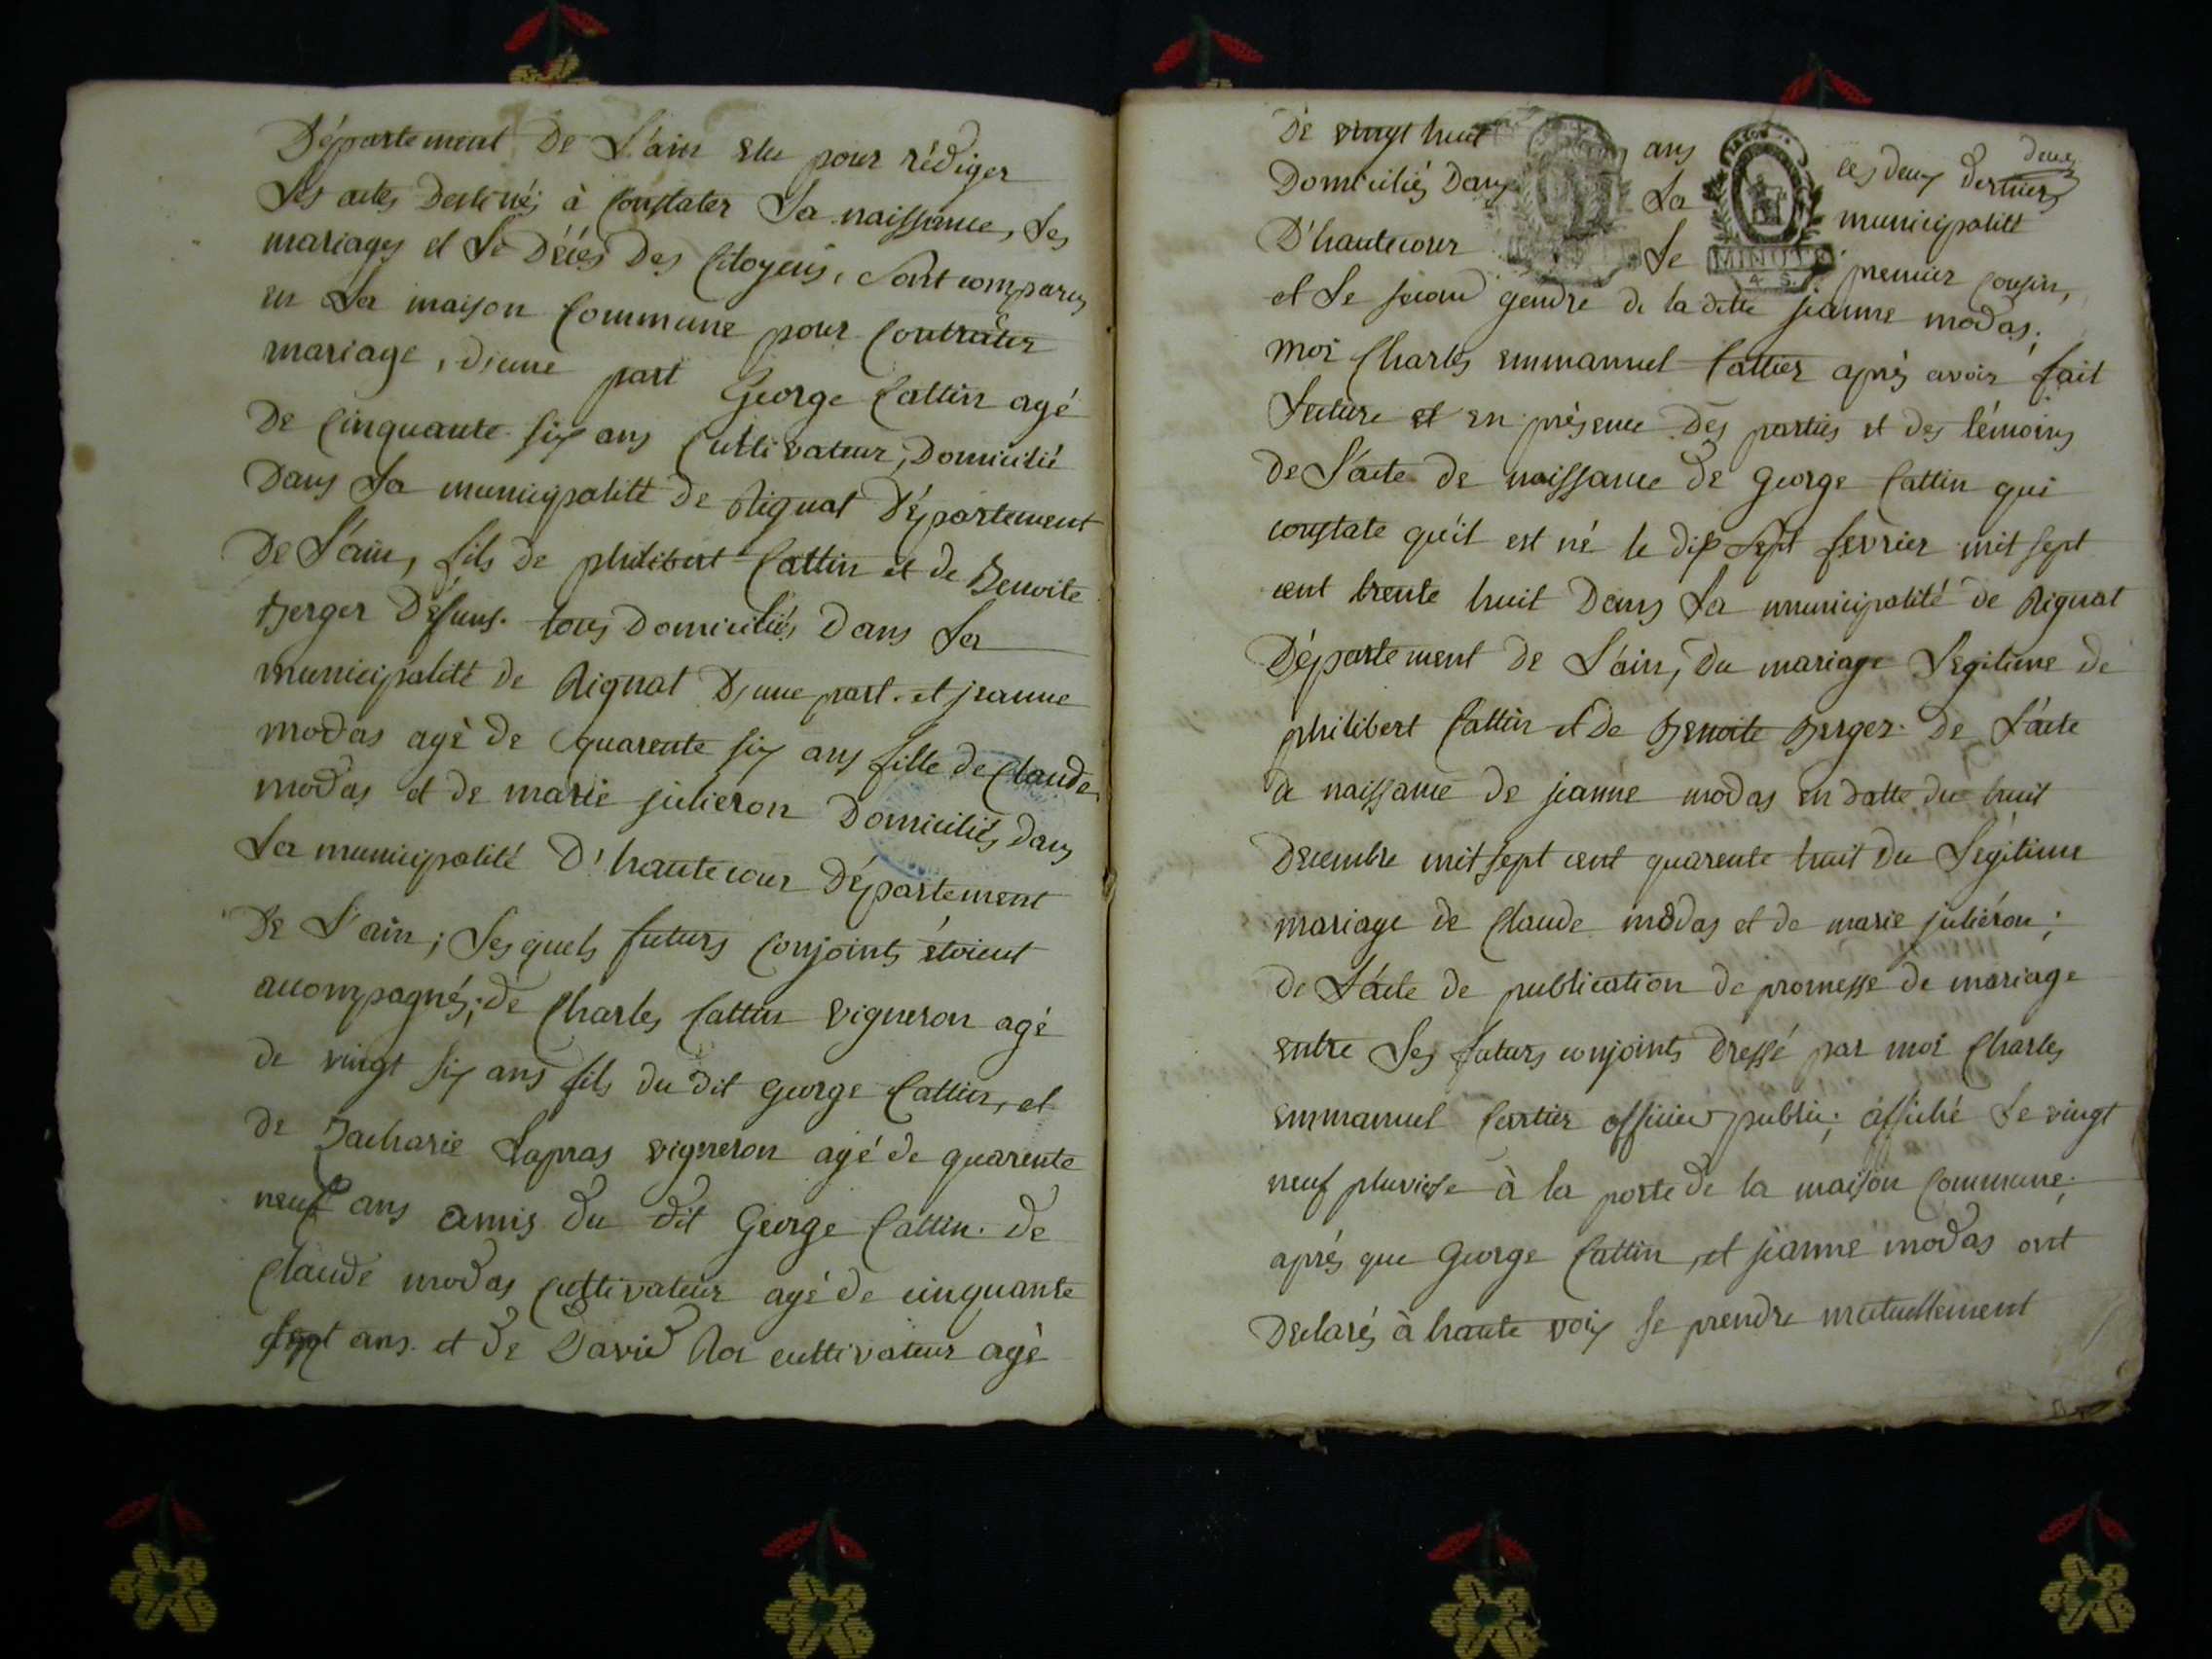 Département De L'ain elu pour rédiger
Les actes Destinés à Constater La naissance, Les
mariages et Le Décès Des Citoyens, Sont comparus
en La maison Commune pour Contracter
mariage, d'une part George Cattin agé
De Cinquante six ans Cultivateur, Domicilié
Dans La municipalité de Rignat Département
De L'ain, fils de philibert Cattin et de Benoite
Berger Défuns. tous Domiciliés Dans La
municipalité de Rignat D'une part. et jeanne
modas agé de quarente six ans fille de Claude
modas et de marie julieron Domiciliés Dans
La municipalité D'hautecour Département
De L'ain; Lesquels futurs Conjoints étoient
acompagnés; de Charles Cattin vigneron agé
de vingt six ans fils du dit George Cattin, et
de Zacharie Lapras vigneron agé de quarente
neuf ans amis du dit George Cattin. de
Claude modas Cultivateur agé de cinquante
sept ans. et de David Roi cultivateur agé
deux
De vingt huit ans ces deux derniers
Domiciliés Dans La municipalité
D'hautecour Le premier Cousin,
MINUTE
et Le second gendre de la ditte jeanne modas;
moi Charles emmanuel Cattier après avoir fait
Lecture et en présence Des parties et des témoins
de L'acte de naissance de George Cattin qui
constate qu'il est né le dix sept fevrier mil sept
cent trente huit Dans La municipalité de Rignat
Département de L'ain, Du mariage Legitime de
philibert Cattin et de Benoite Berger. de L'acte
de naissance de jeanne modas en datte du huit
Decembre mil sept cent quarente huit du Légitime
mariage de Claude modas et de marie juliéron;
de L'acte de publication de promesse de mariage
entre Les futurs conjoints Dressé par moi Charles
emmanuel Cattier officier public; affiché Le vingt
neuf pluviose à la porte de la maison Commune;
aprés que George Cattin, et jeanne modas ont
Declarés à haute voix se prendre mutuellement